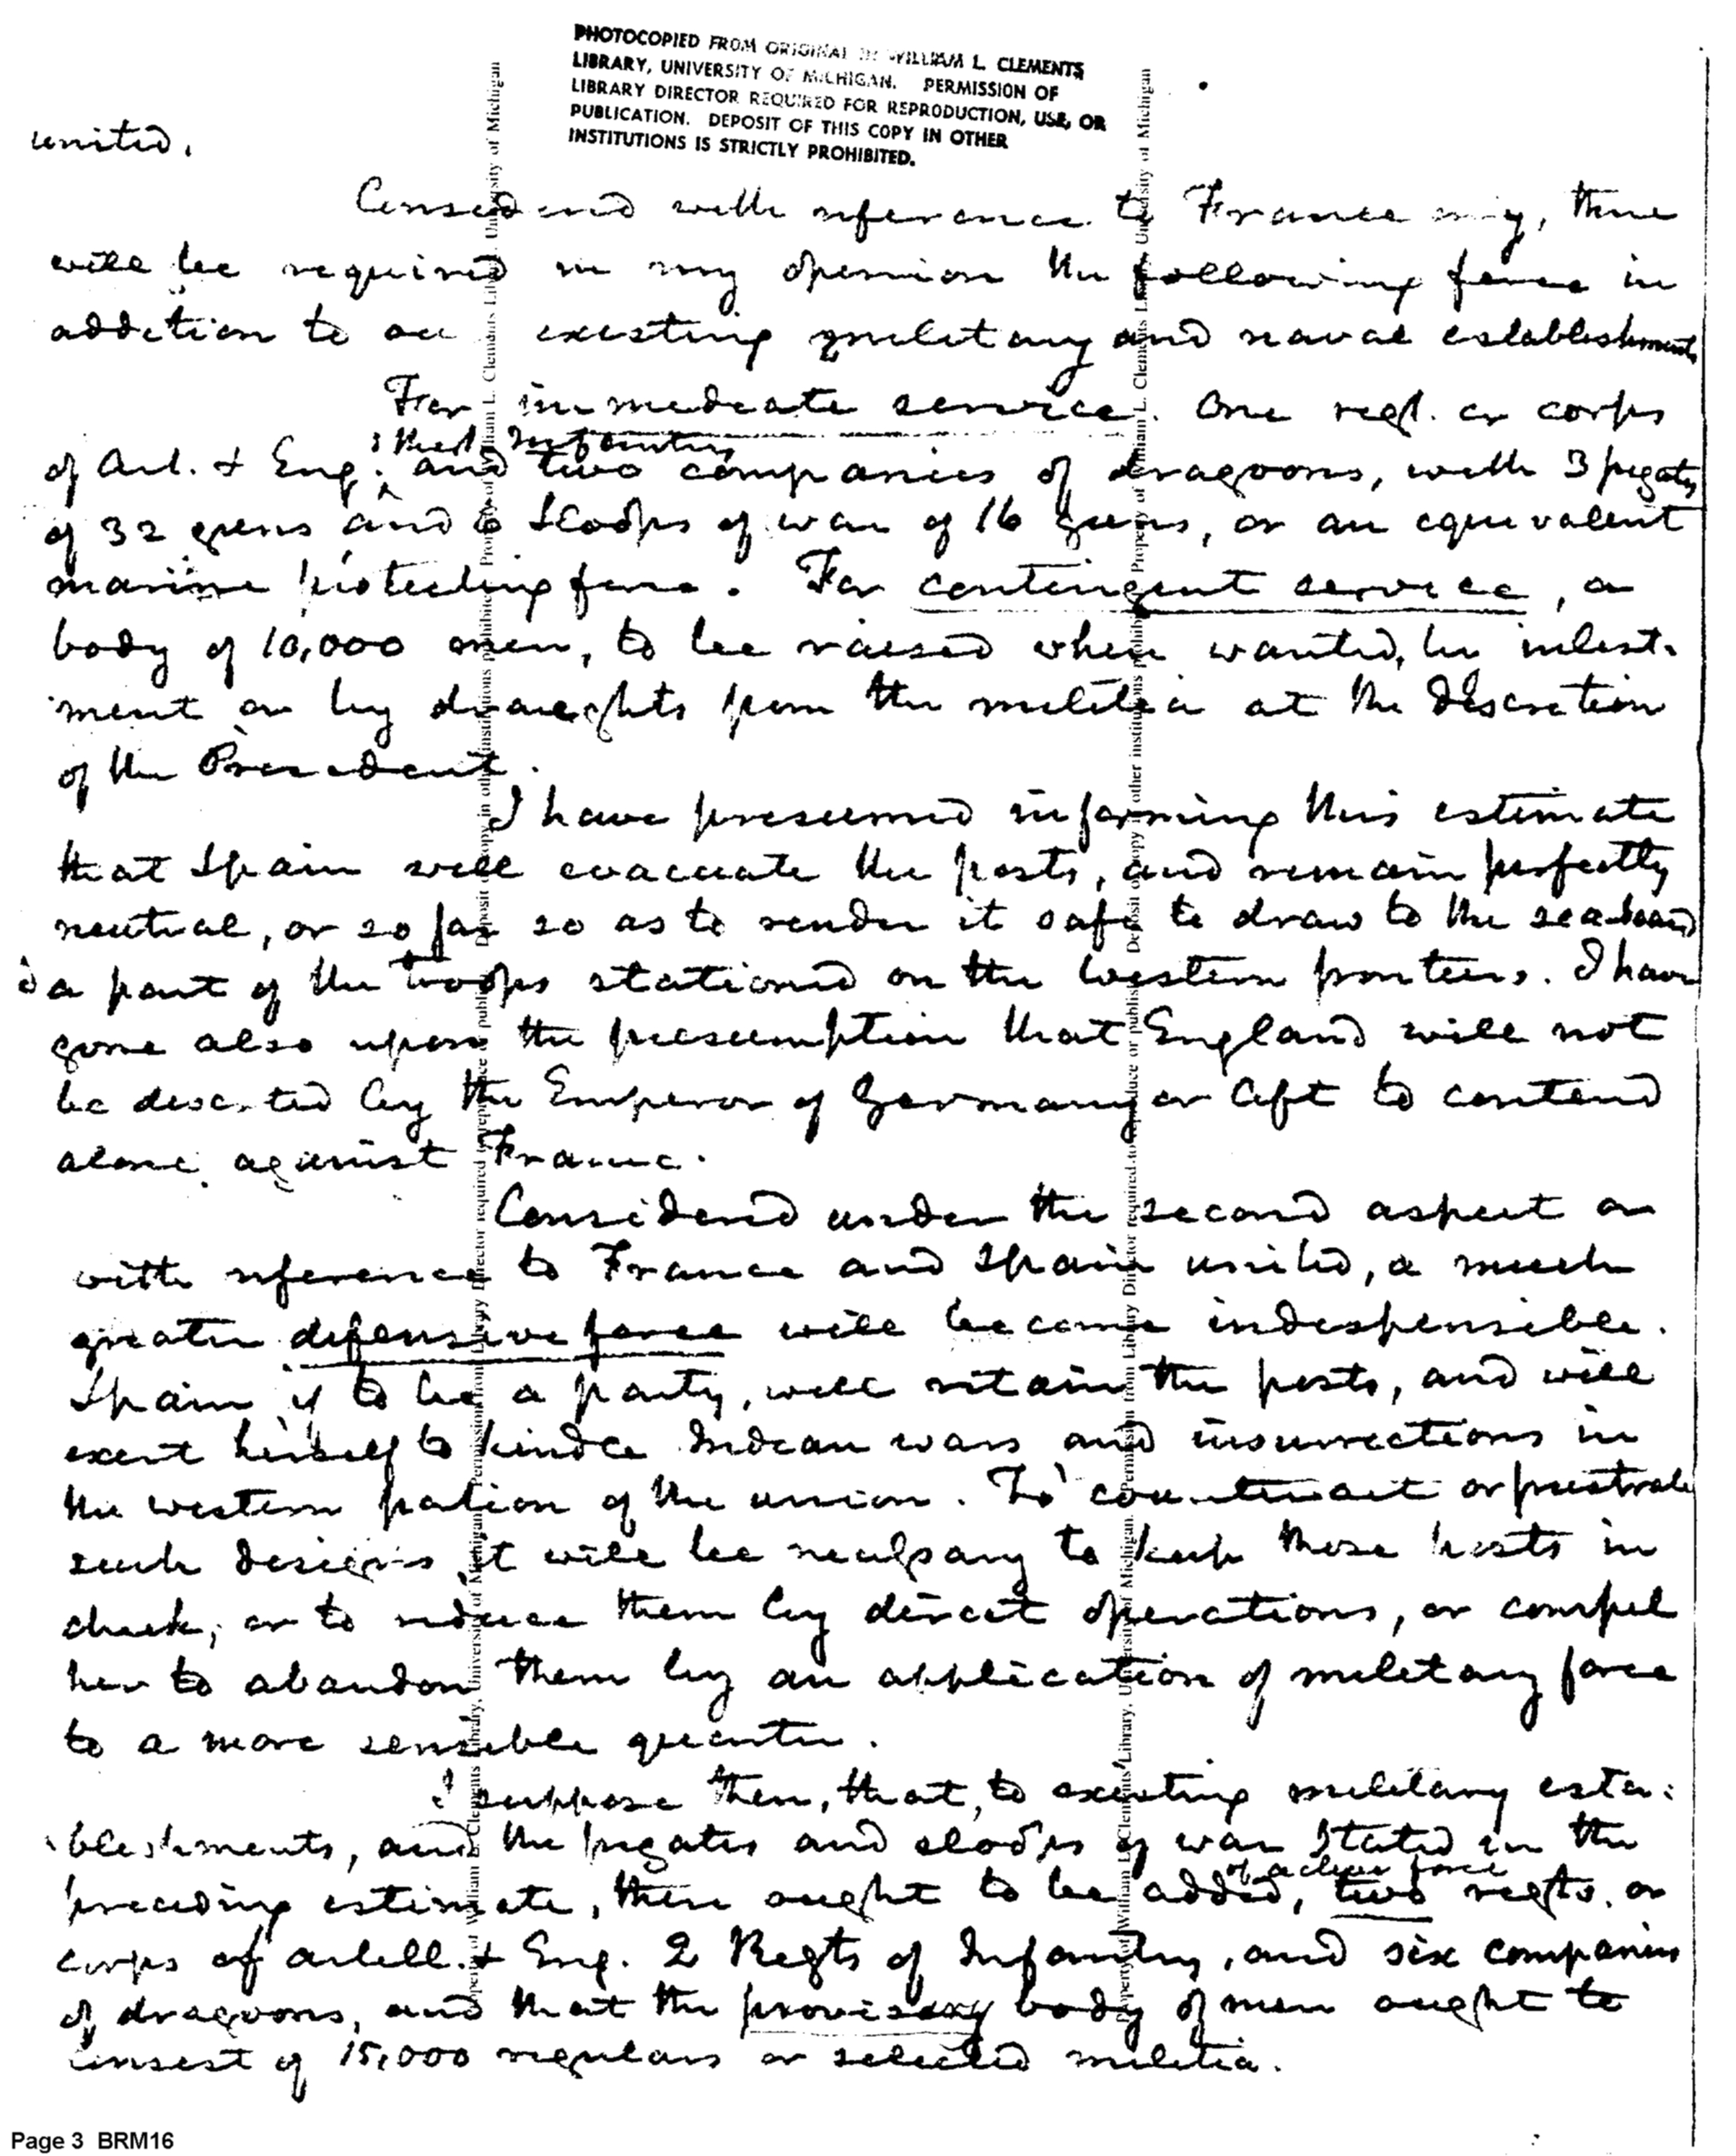 PHOTOCOPIED FROM ORIGINAL IN WILLIAM L. CLEMENTS
LIBRARY, UNIVERSITY OF MICHIGAN. PERMISSION OF
LIBRARY DIRECTOR REQUIRED FOR REPRODUCTION, USE, OR
PUBLICATION. DEPOSIT OF THIS COPY IN OTHER
INSTITUTIONS IS STRICTLY PROHIBITED.
united.
Considered with reference to France only, there
will be required in my opinion the following force in
addition to our existing military and naval establishments
For immediate service. One regt. or corps
of Art. & Eng. and two companies of dragoons, with 3 frigates
1 Regt. Infantry
of 32 guns and 6 sloops of war of 16 guns, or an equivalent
marine protecting force. For contingent service, a
body of 10,000 men, to be raised when wanted, by inlist-
ment or by draughts from the militia at the discretion
of the President.
I have presumed in forming this estimate
that Spain will evacuate the posts, and remain perfectly
neutral, or so far so as to render it safe to draw to the sea-board
a part of the troops stationed on the western frontiers. I have
gone also upon the presumption that England will not
be deserted by the Emperor of Germany or left to contend
alone against France.
Considered under the second aspect or
with reference to France and Spain united, a much
greater defensive force will become indespensible.
Spain if to be a party, will retain the posts, and will
exert herself to kindle Indian wars and insurrections in
the western portion of the union. To counteract or frustrate
such designs, it will be necessary to keep those posts in
check, or to reduce them by direct operations, or compel
her to abandon them by an application of military force
to a more sensible quarter.
I suppose then, that, to existing military esta-
blishments, and the frigates and sloops of war stated in the
preceding estimate, there ought to be added, two regts. or
of active force
corps of artill. & Eng. 2 Regts of Infantry, and six companies
of dragoons, and that the provisory body of men ought to
consist of 15,000 regulars or selected militia.
Page 3 BRM16